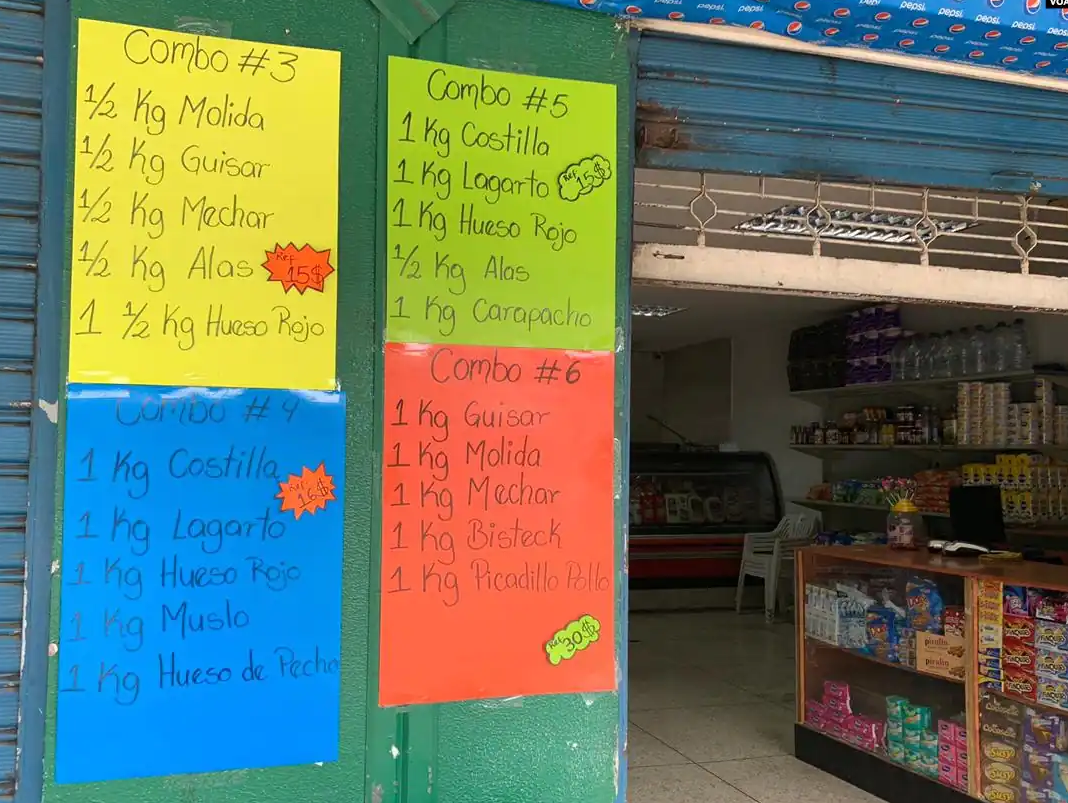 Combo #3
1/2 Kg Molida
1/2 Kg Guisar
1/2 Kg Mechar
1/2 Kg Alas
Ref
15$
1 1/2 Kg Hueso Rojo
Combo #4
1 Kg Costilla
Ref
16$
1 Kg Lagarto
1 Kg Hueso Rojo
1 Kg Muslo
1 Kg Hueso de Pecho
Combo #5
1 Kg Costilla
1 Kg Lagarto
Ref
15$
1 Kg Hueso Rojo
1/2 Kg Alas
1 Kg Carapacho
Combo #6
1 Kg Guisar
1 Kg Molida
1 Kg Mechar
1 Kg Bisteck
1 Kg Picadillo Pollo
Ref
30$
pepsi
VOA
pirulin
pirulin